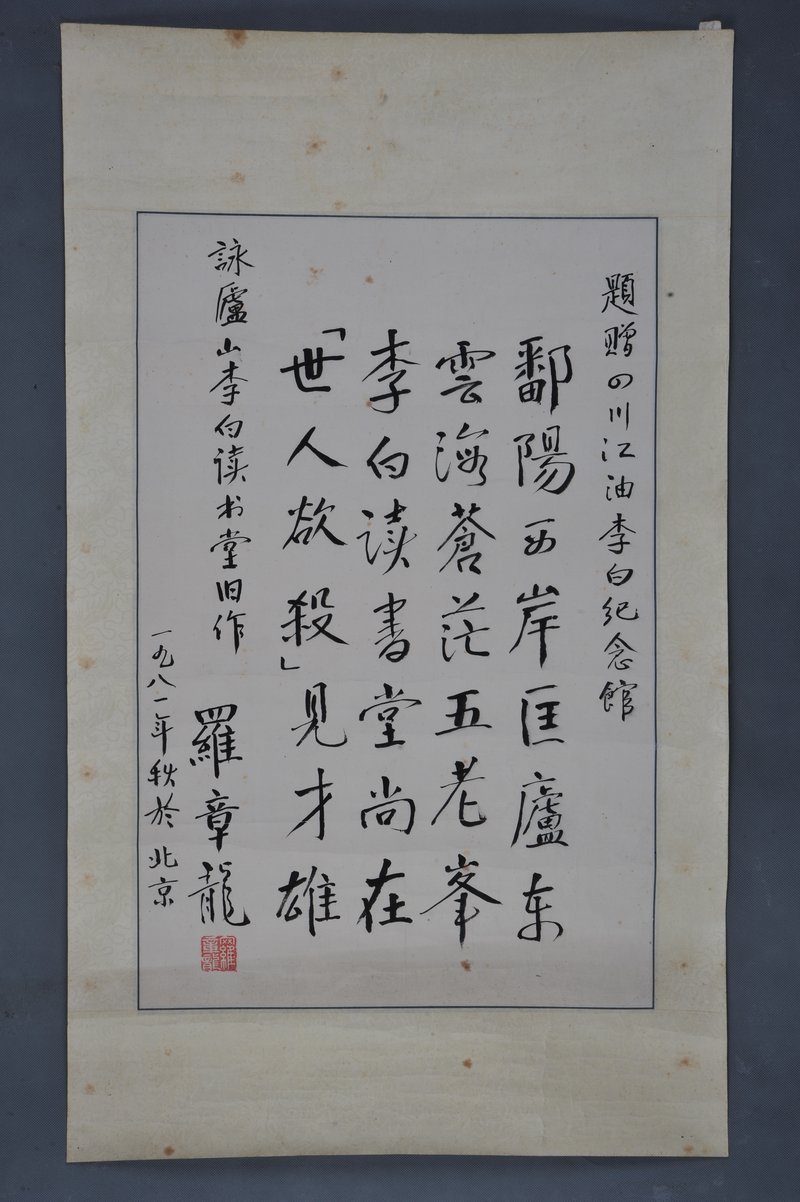 題赠四川江油李白纪念館
鄱陽西岸匡廬东
雲海蒼茫五老峯
李白读書堂尚在
「世人欲殺」見才雄
詠廬山李白读书堂旧作
羅章龍
一九八一年秋於北京
羅章龍